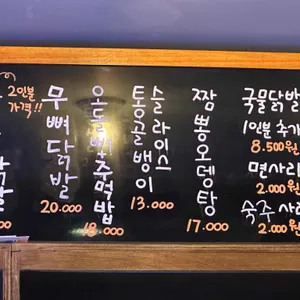 2인분
가격!!
무뼈닭발
20.000
오돌뼈주먹밥
18.000
통골뱅이
슬라이스
13.000
짬뽕오뎅탕
17.000
국물닭발
1인분 추가
8.500원
면사리
2.000원
숙주 사리
2.000원